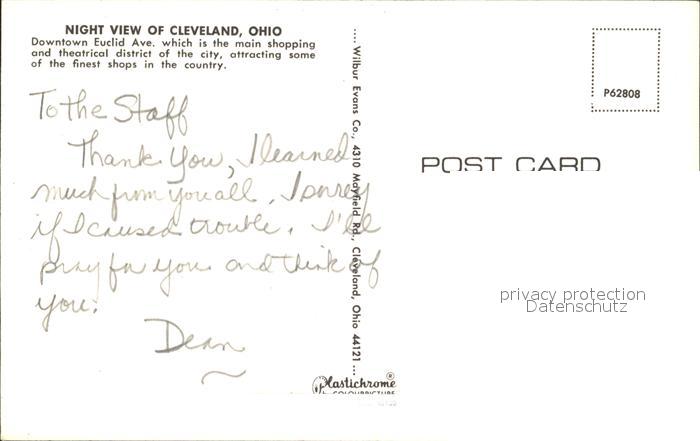 NIGHT VIEW OF CLEVELAND, OHIO
Downtown Euclid Ave. which is the main shopping
and theatrical district of the city, attracting some
of the finest shops in the country.
To the Staff
Thank You, I learned
much from you all. I sorrey
if I caused trouble. I'll
pray for you and think of
you.
Dean
Wilbur Evans Co., 4310 Mayfield Rd., Cleveland, Ohio 44121
Plastichrome®
COLOURPICTURE
P62808
POST CARD
privacy protection
Datenschutz